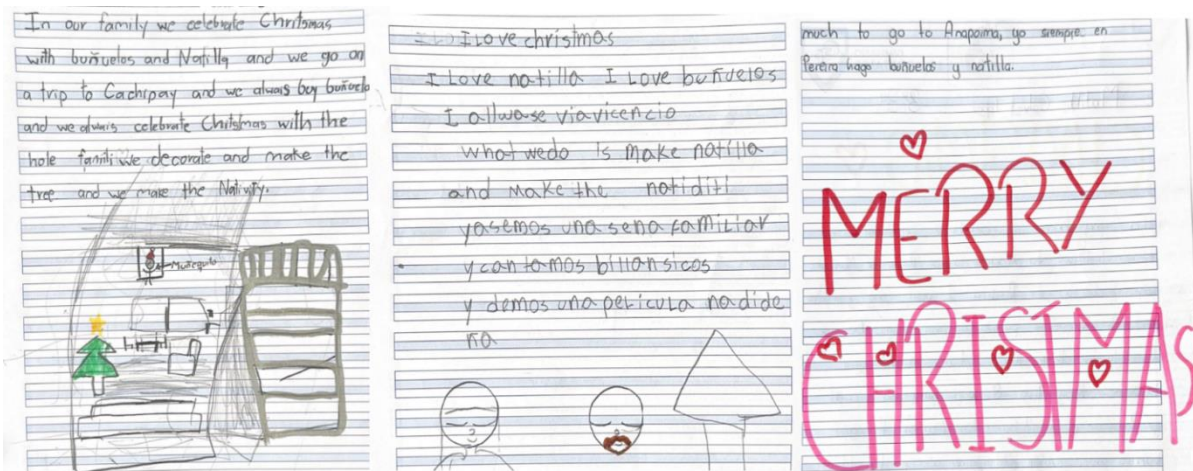 In our family we celebrate Chritsmas
with buñuelos and Natilla and we go on
a trip to Cachipay and we alwais boy buñuelo
and we alwais celebrate Chitsmas with the
hole famili we decorate and make the
tree and we make the Nativity.
Muñequito
I Love christmas
I Love natilla I Love buñuelos
I allwase viavicencio
what wedo is make natilla
and make the notiditi
yasemos una sena familiar
y cantamos billansicos
y demos una pelicula nadide
ña
much to go to Anapoima, yo siempre en
Pereira hago buñuelos y natilla.
MERRY
CHRISTMAS